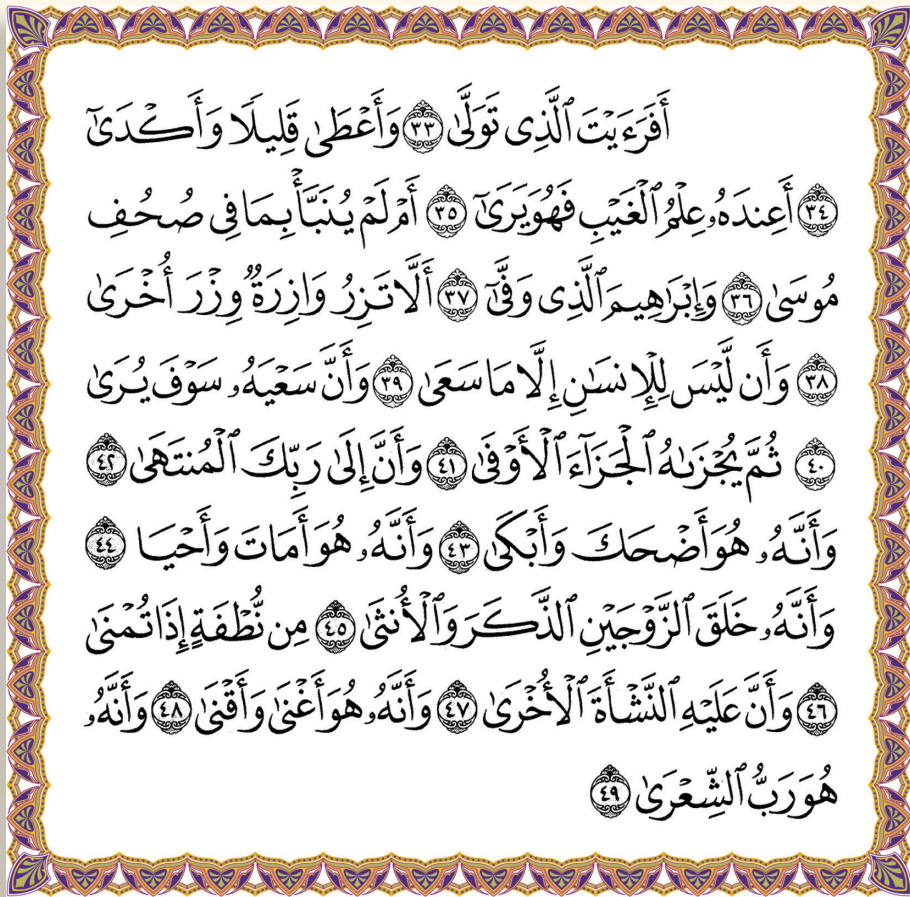 أَفَرَءَيۡتَ ٱلَّذِى تَوَلَّىٰ ٣٣ وَأَعۡطَىٰ قَلِيلًا وَأَكۡدَىٰٓ
٣٤ أَعِندَهُۥ عِلۡمُ ٱلۡغَيۡبِ فَهُوَ يَرَىٰٓ ٣٥ أَمۡ لَمۡ يُنَبَّأۡ بِمَا فِى صُحُفِ
مُوسَىٰ ٣٦ وَإِبۡرَٰهِيمَ ٱلَّذِى وَفَّىٰٓ ٣٧ أَلَّا تَزِرُ وَازِرَةٌ وِزۡرَ أُخۡرَىٰ
٣٨ وَأَن لَّيۡسَ لِلۡإِنسَٰنِ إِلَّا مَا سَعَىٰ ٣٩ وَأَنَّ سَعۡيَهُۥ سَوۡفَ يُرَىٰ
٤٠ ثُمَّ يُجۡزَىٰهُ ٱلۡجَزَآءَ ٱلۡأَوۡفَىٰ ٤١ وَأَنَّ إِلَىٰ رَبِّكَ ٱلۡمُنتَهَىٰ ٤٢
وَأَنَّهُۥ هُوَ أَضۡحَكَ وَأَبۡكَىٰ ٤٣ وَأَنَّهُۥ هُوَ أَمَاتَ وَأَحۡيَا ٤٤
وَأَنَّهُۥ خَلَقَ ٱلزَّوۡجَيۡنِ ٱلذَّكَرَ وَٱلۡأُنثَىٰ ٤٥ مِن نُّطۡفَةٍ إِذَا تُمۡنَىٰ
٤٦ وَأَنَّ عَلَيۡهِ ٱلنَّشۡأَةَ ٱلۡأُخۡرَىٰ ٤٧ وَأَنَّهُۥ هُوَ أَغۡنَىٰ وَأَقۡنَىٰ ٤٨ وَأَنَّهُۥ
هُوَ رَبُّ ٱلشِّعۡرَىٰ ٤٩